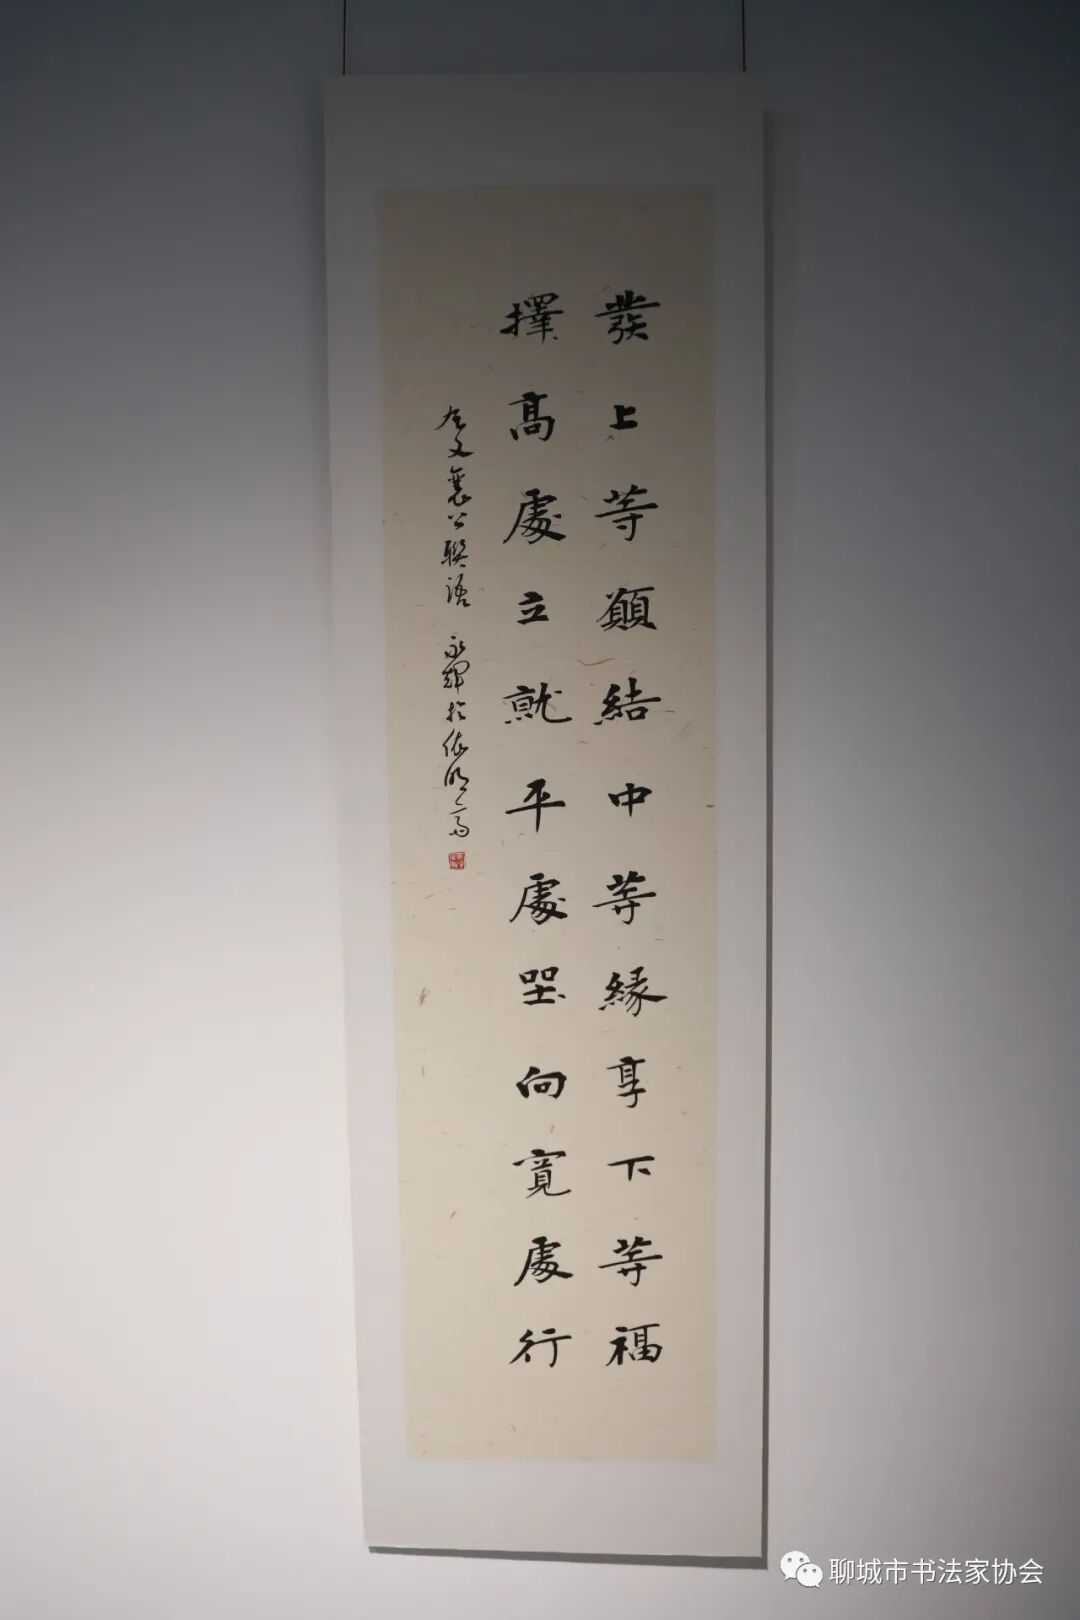 發上等願結中等緣享下等福
擇高處立就平處坐向寬處行
左文襄公聯語 永輝於依明齋
聊城市书法家协会